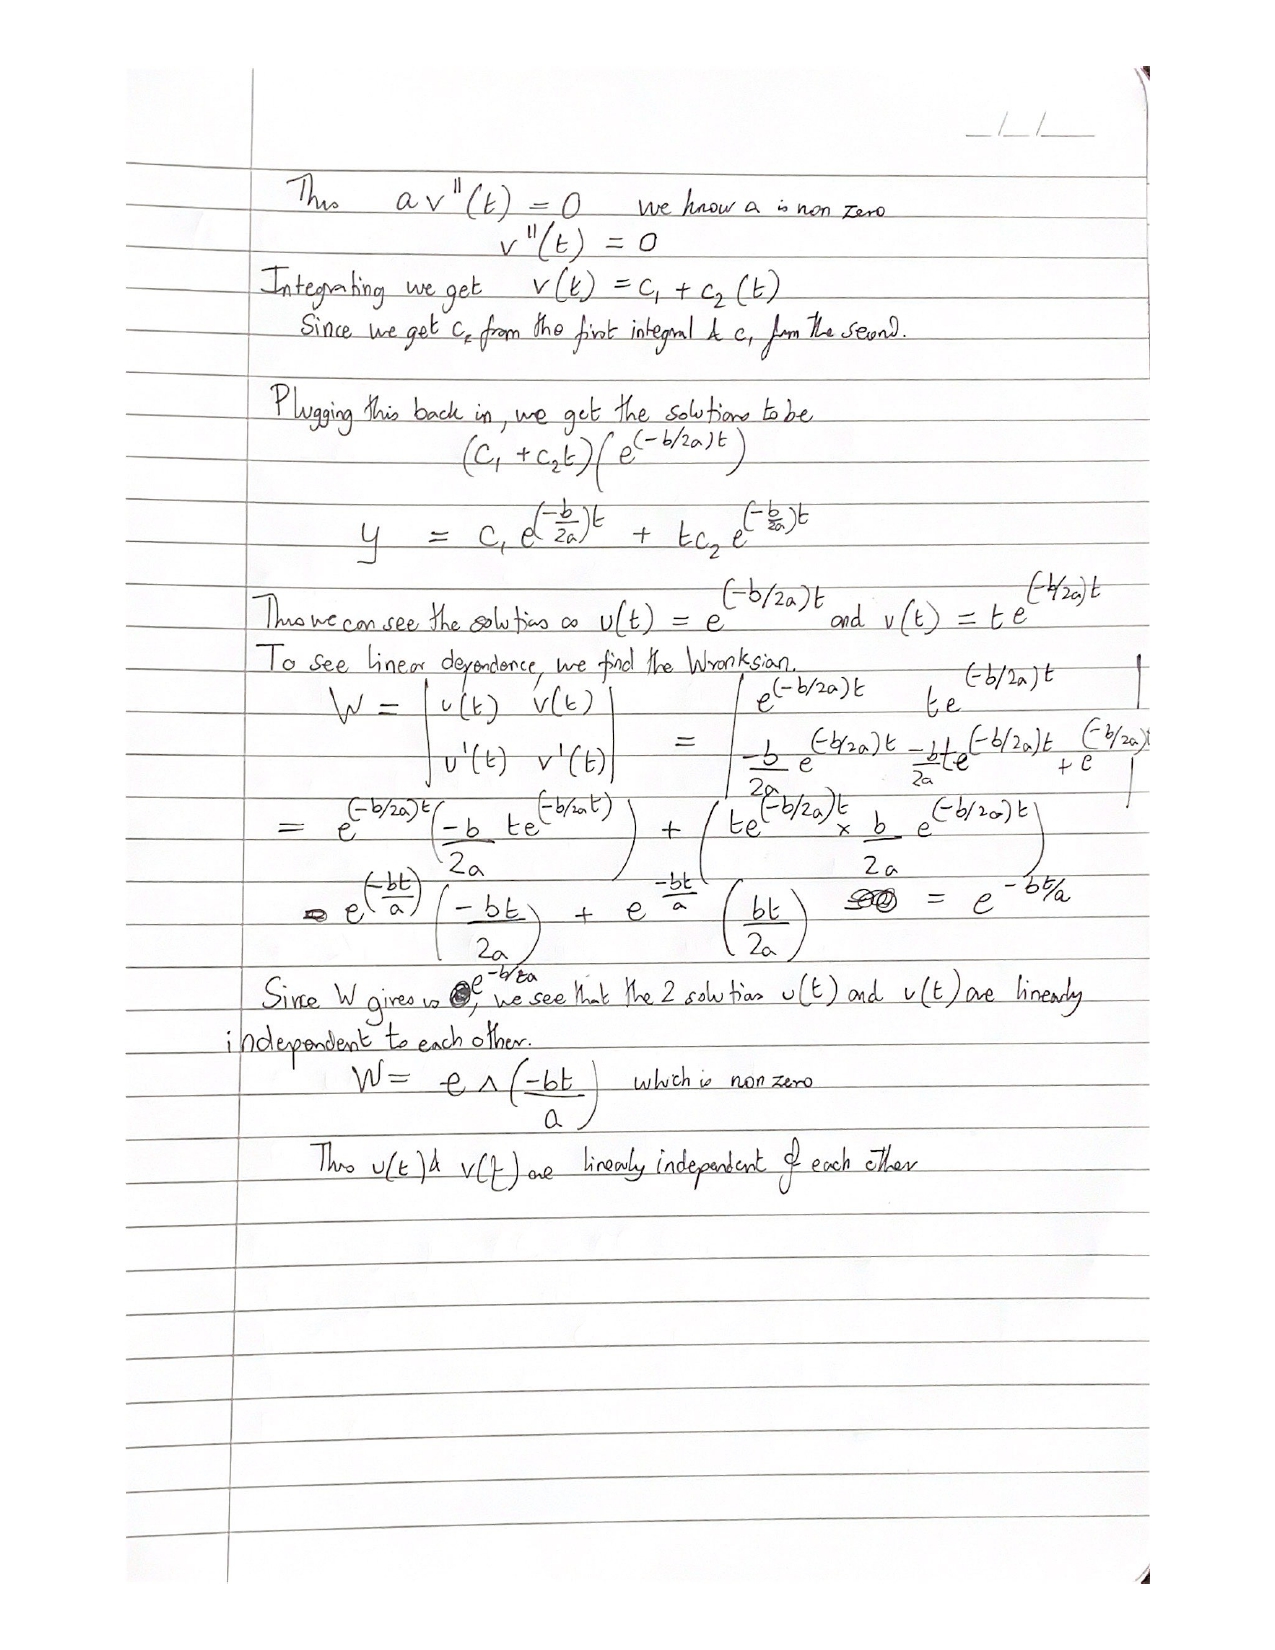 _/_/__
Thus a v"(t) = 0 we know a is non zero
v"(t) = 0
Integrating we get v(t) = c₁ + c₂ (t)
Since we get c₂ from the first integral & c₁ from the second.
Plugging this back in, we get the solutions to be
(C₁ + c₂t)(e^(-b/2a)t)
y = c₁ e^(-b/2a)t + tc₂ e^(-b/2a)t
Thus we can see the solutions as u(t) = e^(-b/2a)t and v(t) = te^(-b/2a)t
To see linear dependence, we find the Wronksian.
W = |u(t) v(t)| = |e^(-b/2a)t te^(-b/2a)t|
|u'(t) v'(t)| |-b/2a e^(-b/2a)t -b/2a te^(-b/2a)t + e^(-b/2a)|
= e^(-b/2a)t (-b/2a te^(-b/2a t)) + (te^(-b/2a)t × b/2a e^(-b/2a)t)
e^(-bt/a) (-bt/2a) + e^-bt/a (bt/2a) = e^-bt/a
Since W gives us e^-b/ta, we see that the 2 solutions u(t) and v(t) are linearly
independent to each other.
W = e ^ (-bt/a) which is non zero
Thus u(t) & v(t) are linearly independent of each other